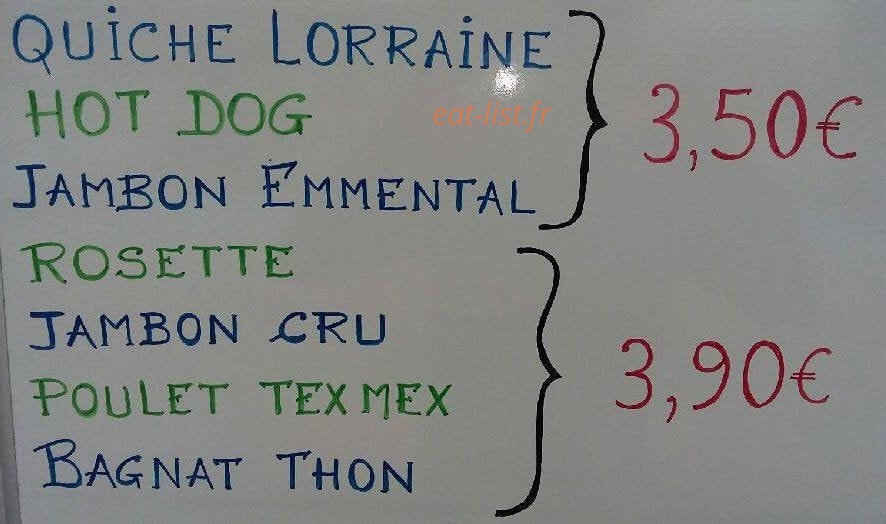 QUICHE LORRAINE
HOT DOG
eat-list.fr
JAMBON EMMENTAL
3,50€
ROSETTE
JAMBON CRU
POULET TEX MEX
BAGNAT THON
3,90€